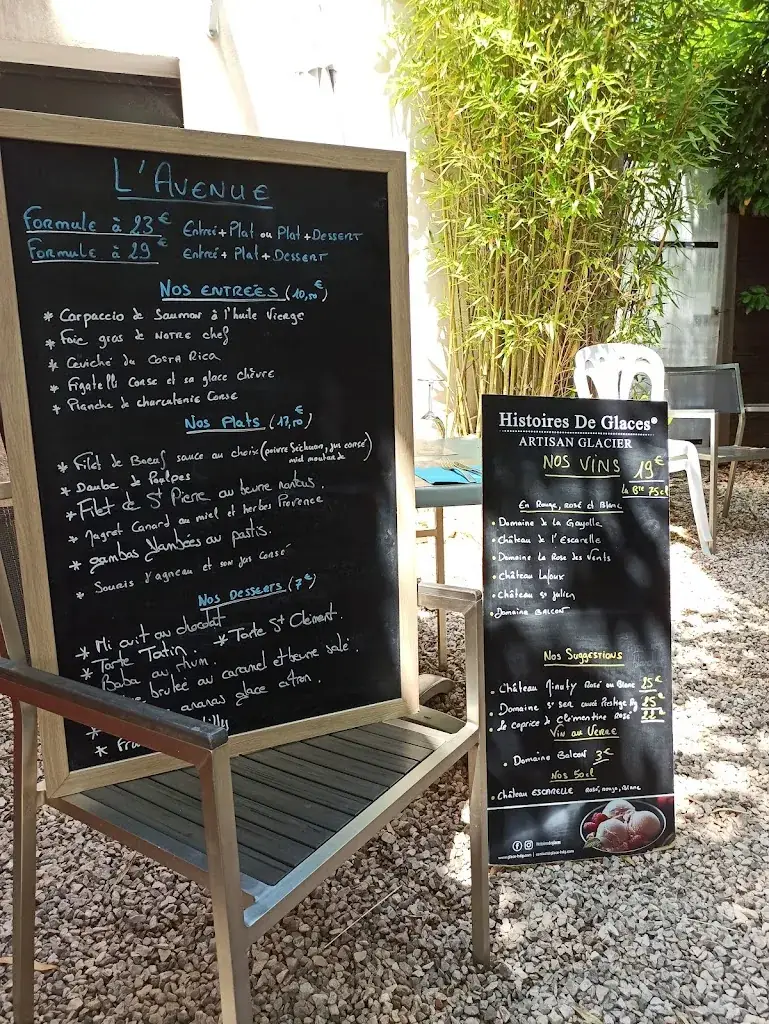 L'AVENUE
Formule à 23€ Entrée + Plat ou Plat + DESSERT
Formule à 29€ Entrée + Plat + DESSERT
Nos ENTREES (10,50€)
* Carpaccio de Saumon à l'huile Vierge
* Foie gras de NOTRE chef
* Ceviché du COSTA RICA
* Figatelli Corse et sa glace chèvre
* Planche de charcuterie Corse
Nos PLATS (17,50)
* Filet de Boeuf sauce au choix (poivre Séchuan, jus corsé
miel moutarde)
* Daube de Poulpes
* Filet de St Pierre au beurre nantais.
* Magret Canard au miel et herbes Provence
* gambas flambées au pastis.
* Souris d'agneau et son jus corsé
Nos DESSERTS (7€)
* Mi cuit au chocolat * Tarte St Clément.
* Tarte Tatin.
* Baba au rhum.
brulée au caramel et beurre salé.
ananas glace citron.
Histoires De Glaces®
ARTISAN GLACIER
NOS VINS 19€
la Bte 75cl
En Rouge, rosé et Blanc
• Domaine de la Gayolle
• Château de l'Escarelle
• Domaine La Rose des Vents
• Château Lafoux
• Château St Julien
• Domaine BALCON
Nos Suggestions
• Château Minuty Rosé ou Blanc 25€
• Domaine St SER cuvée Prestige 25€
• Le caprice de Clémentine Rosé 22€
Vin au Verre
• Domaine Balcon 3€
Nos 50cl
• Château ESCARELLE Rosé, rouge, Blanc